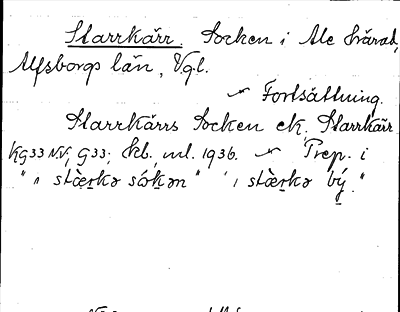 Starrkärr Socken i Ale härad,
Älfsborgs län, Vgl.
Fortsättning.
Starrkärrs Socken ek. Starrkärr
KG33 NV, G33; Skb, ml. 1936. Prep. i
"i stærkə sókən" "i stærkə by̓."